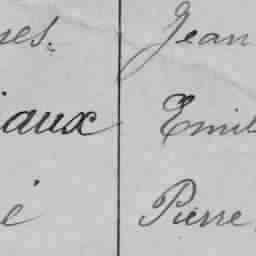 nes. Jean
iaux Emil
é Pierre